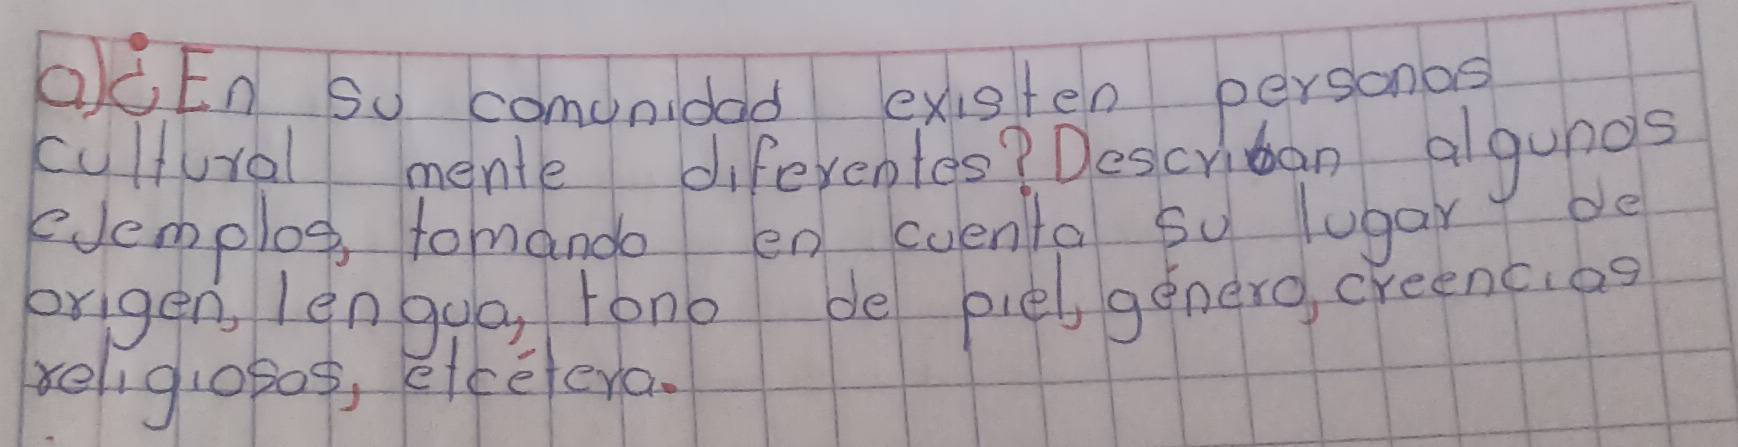 a)¿En su comunidad existen personas
cultural mente diferentes? Describan algunos
ejemplos, tomando en cuenta su lugar de
origen, lengua, tono de piel, género, creencias
religiosos, etcétera.